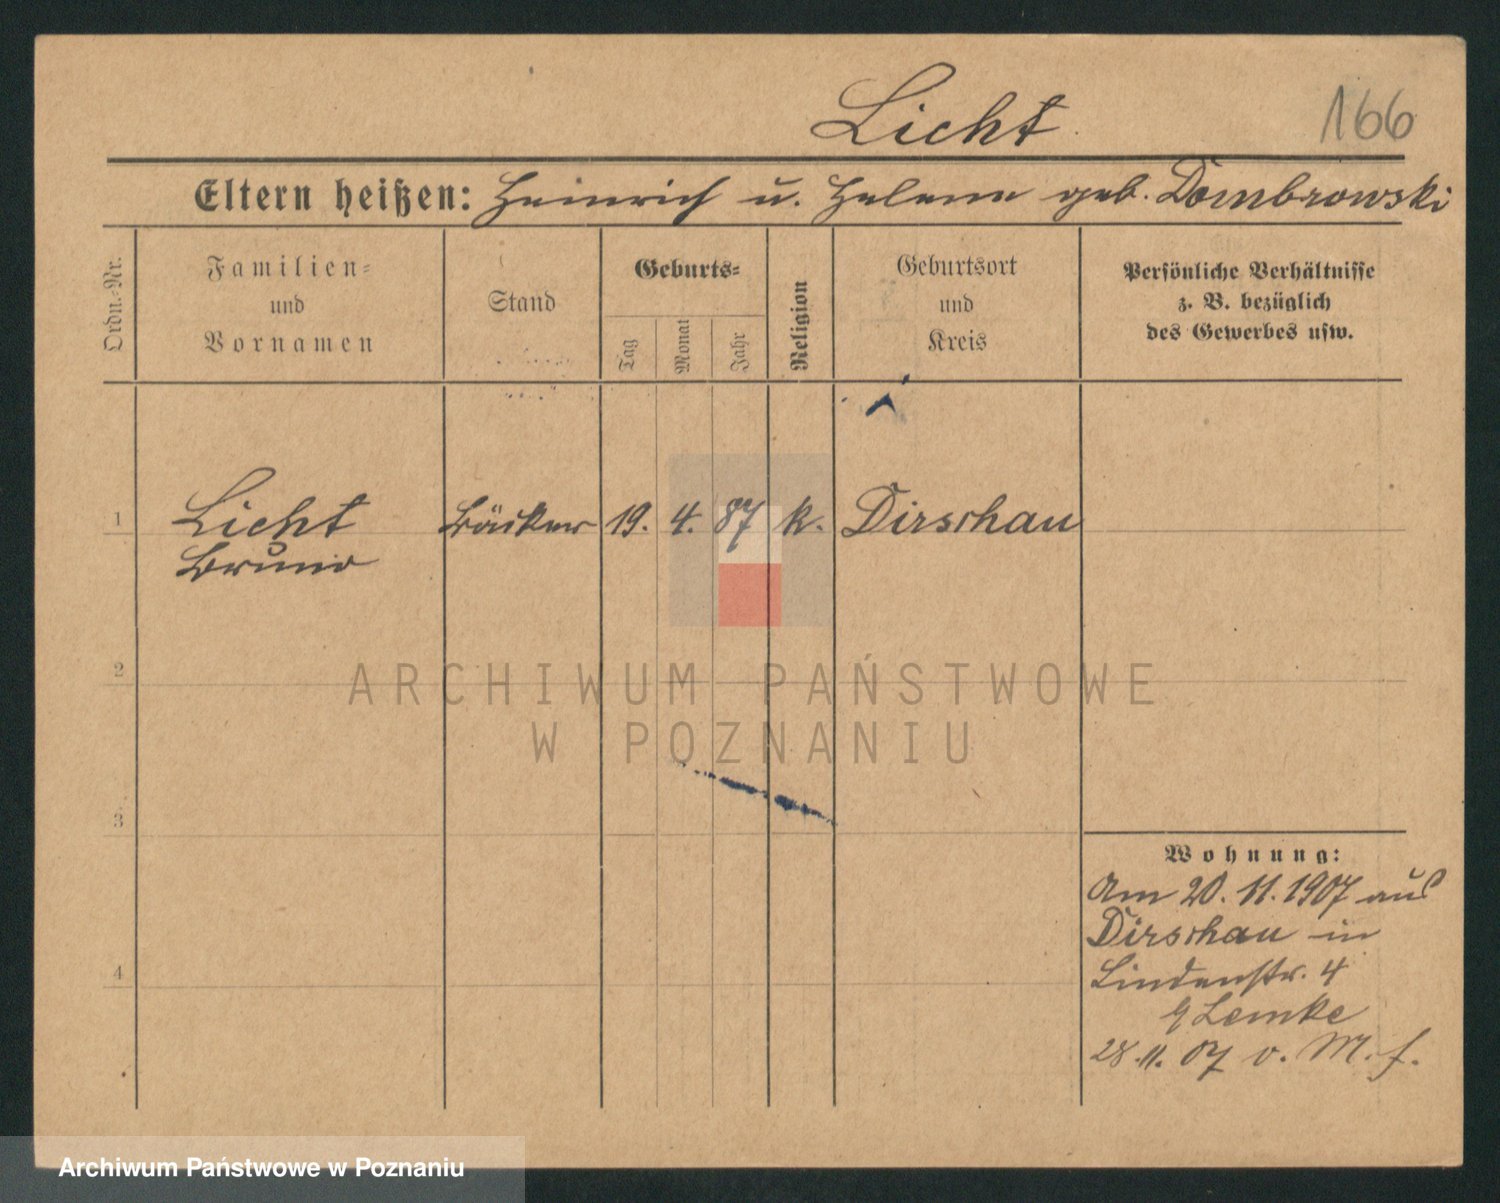 Licht
166
Eltern heißen: Heinrich u. Helene geb. Dombrowski
Ordn.-Nr.
Familien-
und
Vornamen
Stand
Geburts-
Tag
Monat
Jahr
Religion
Geburtsort
und
Kreis
Persönliche Verhältnisse
z. B. bezüglich
des Gewerbes usw.
1 Licht Bäcker 19. 4. 87 k. Dirschau
Bruno
2
3
4
Wohnung:
Am 20. 11. 1907 aus
Dirschau in
Lindenstr. 4
Lemke
28. 11. 07 v. M. f.
ARCHIWUM PAŃSTWOWE
W POZNANIU
Archiwum Państwowe w Poznaniu